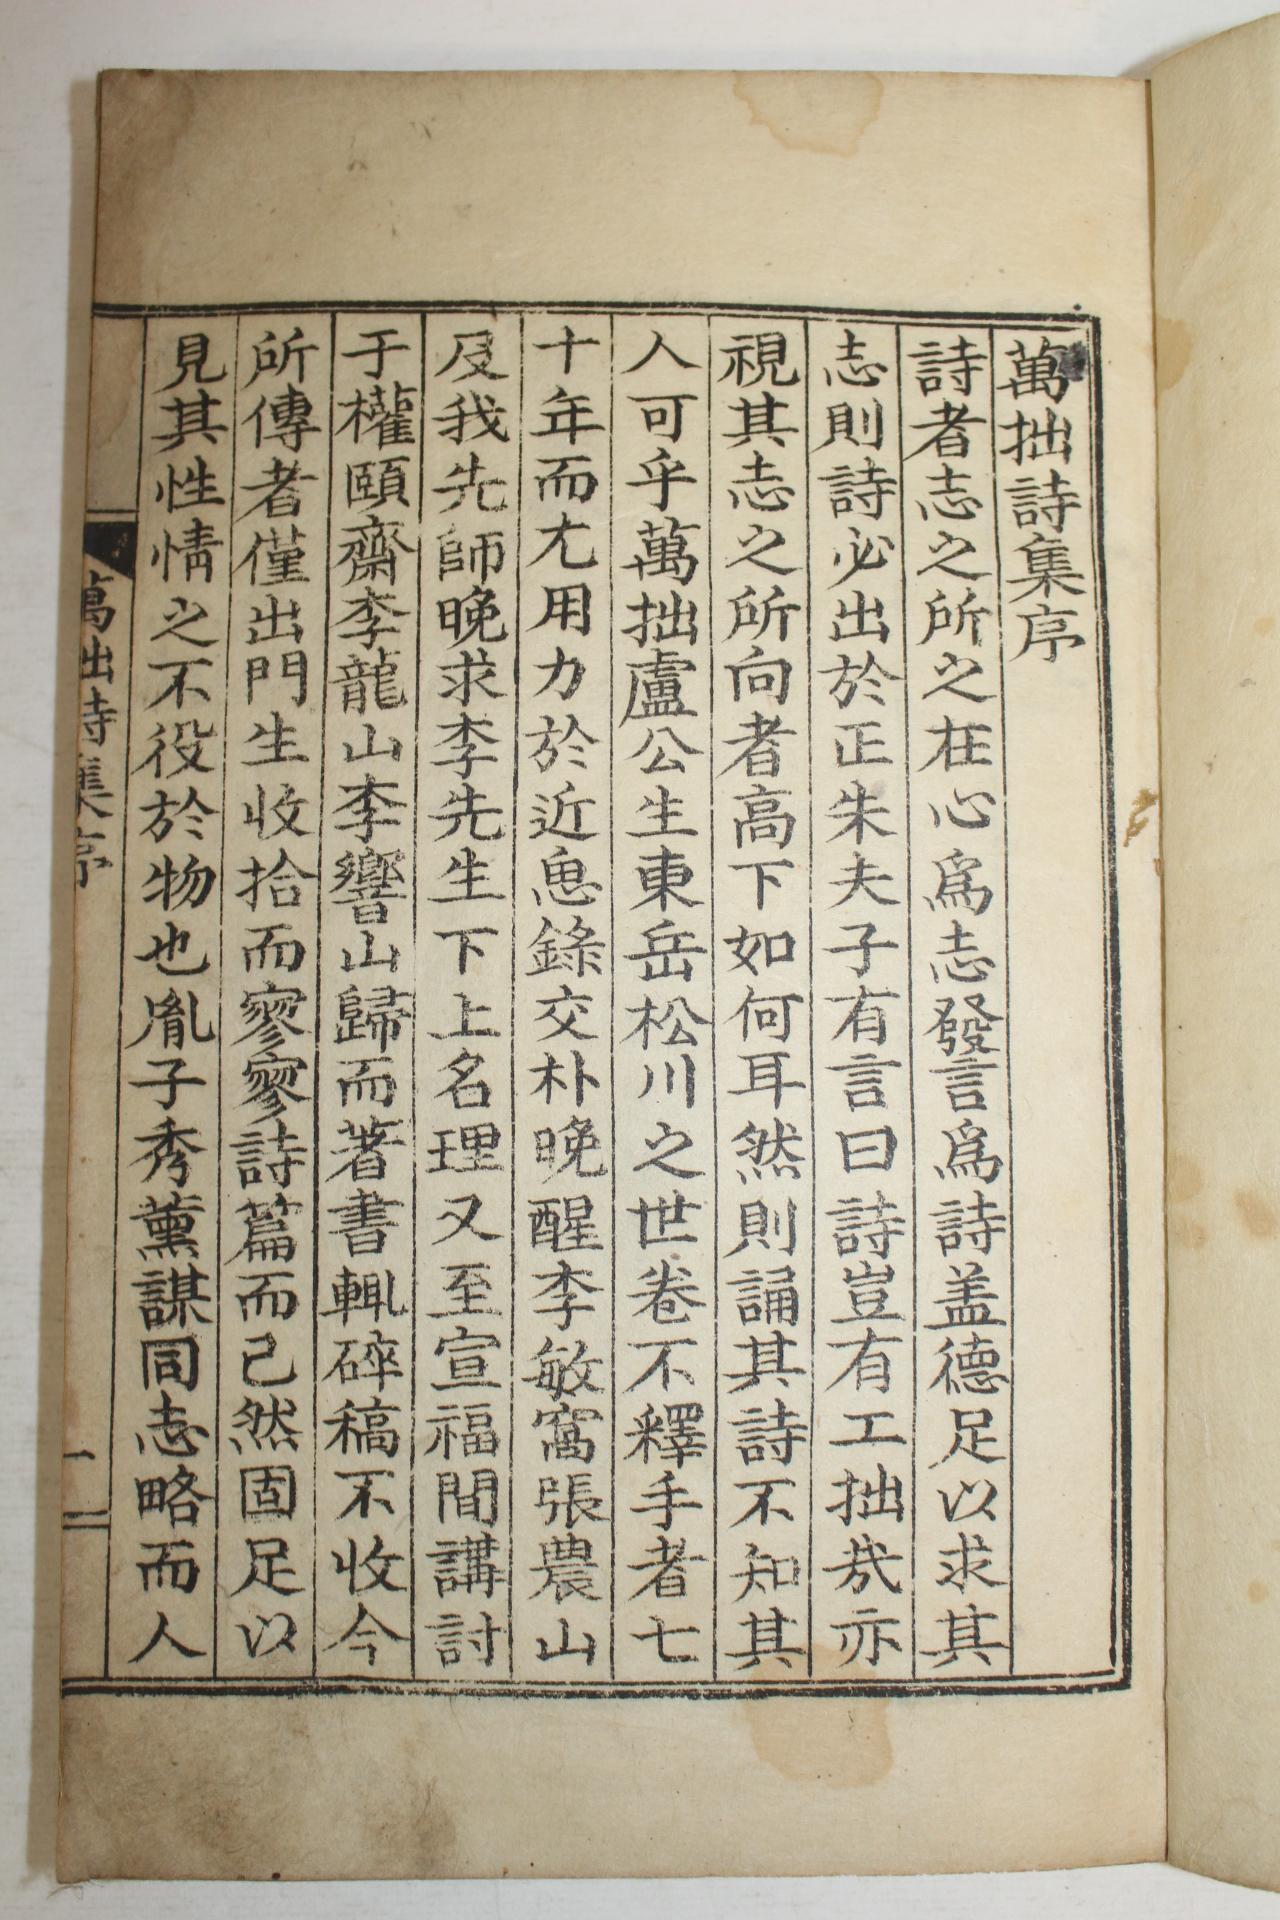 萬拙詩集序
詩者志之所之在心爲志發言爲詩盖德足以求其
志則詩必出於正朱夫子有言曰詩豈有工拙㢤亦
視其志之所向者高下如何耳然則誦其詩不知其
人可乎萬拙盧公生東岳松川之世卷不釋手者七
十年而尤用力於近思錄交朴晩醒李敏窩張農山
及我先師晩求李先生下上名理又至宣福間講討
于權頤齋李龍山李響山歸而著書輒碎稿不收今
所傳者僅出門生收拾而寥寥詩篇而已然固足以
見其性情之不役於物也胤子秀薰謀同志略而人
萬拙詩集序
一